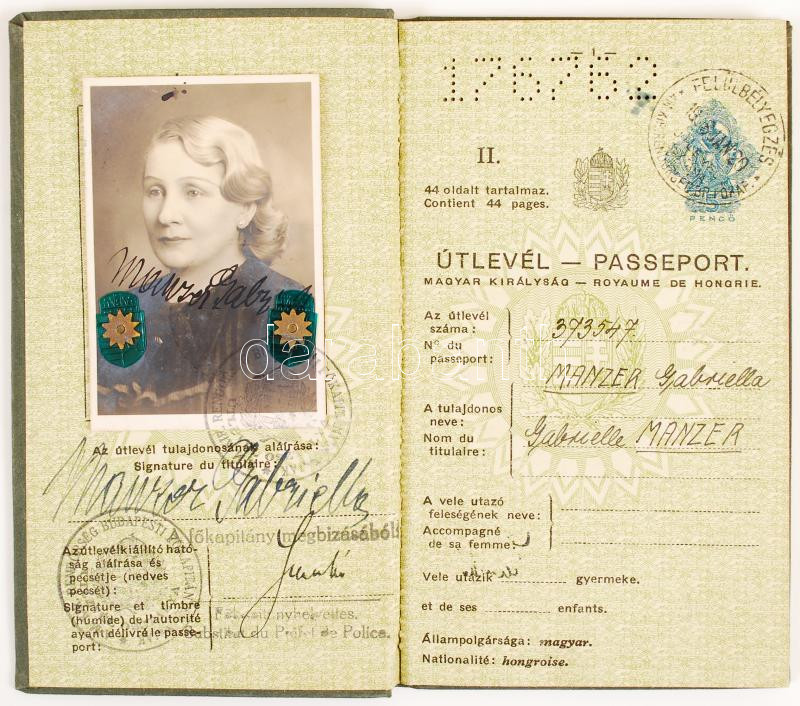 Manzer Gabriella
Az útlevél tulajdonosának aláírása:
Signature du titulaire:
Manzer Gabriella
főkapitány megbizásából:
Az útlevélkiállító ható-
ság aláírása és
pecsétje (nedves
pecsét):
Signature et timbre
(humide) de l'autorité
ayant délivré le passe-
port:
Substitut du Préfet de Police.
176762
FELÜLBÉLYEGZÉS
PENGŐ
II.
44 oldalt tartalmaz.
Contient 44 pages.
ÚTLEVÉL — PASSEPORT.
MAGYAR KIRÁLYSÁG — ROYAUME DE HONGRIE.
Az útlevél
száma:
N° du
passeport:
373547.
MANZER Gabriella
A tulajdonos
neve:
Nom du
titulaire:
Gabrielle MANZER
A vele utazó
feleségének neve:
Accompagné
de sa femme:
Vele utazik gyermeke.
et de ses enfants.
Állampolgársága: magyar.
Nationalité: hongroise.
darabanth